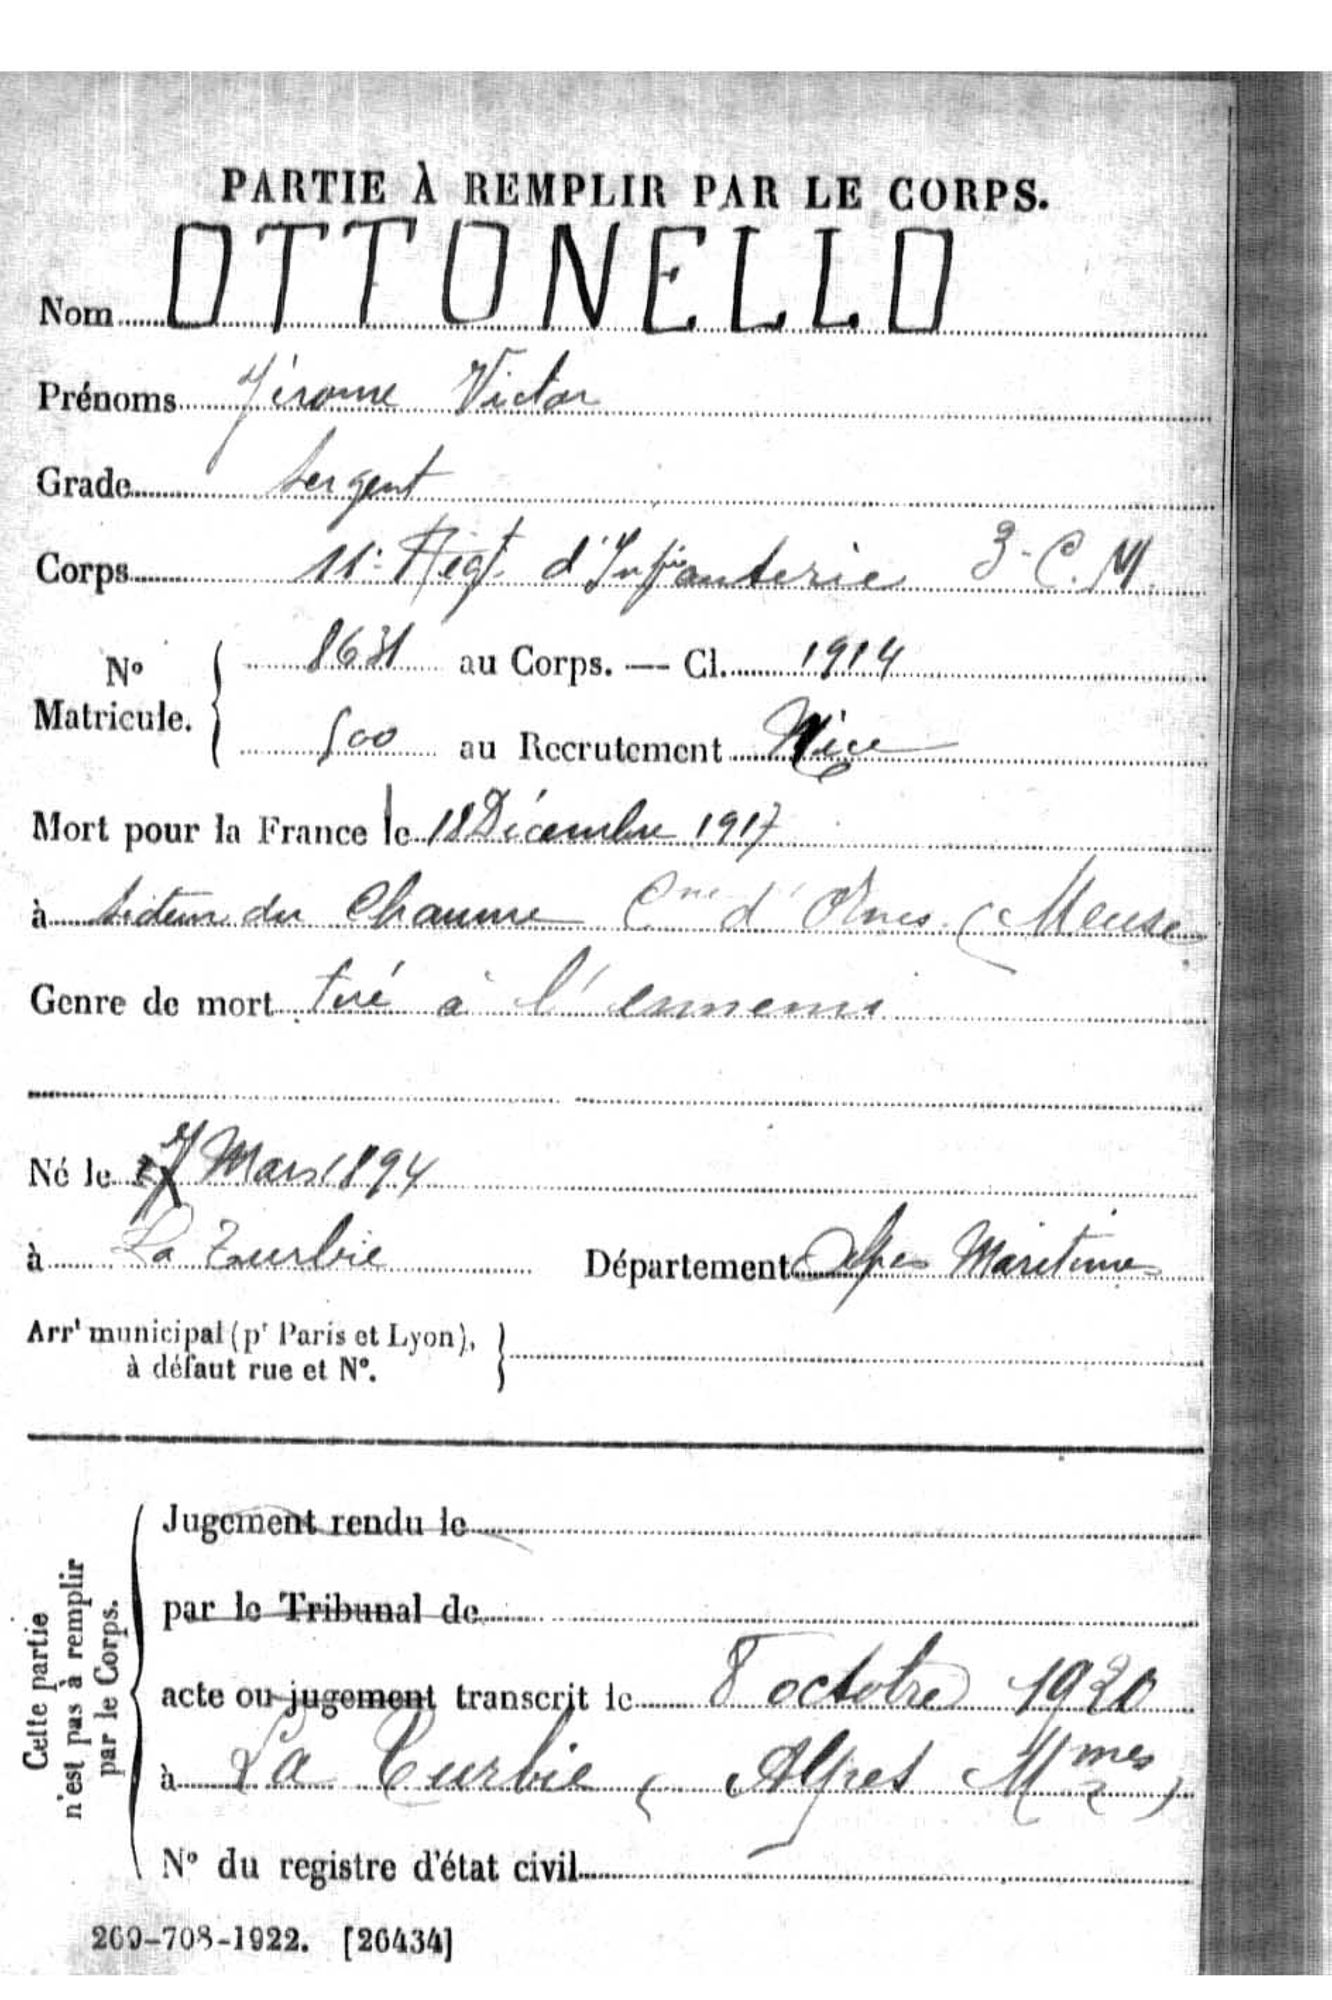 PARTIE À REMPLIR PAR LE CORPS.
Nom OTTONELLO
Prénoms Jérome Victor
Grade Sergent
Corps 11e Régt. d'Infanterie 3 - C. M
No Matricule. 8631 au Corps. — Cl. 1914
500 au Recrutement Nice
Mort pour la France le 18 Décembre 1917
à Secteur du Chaume Cne d'Ornes (Meuse
Genre de mort tué à l'ennemi
Né le 7 Mars 1894
à La Turbie Département Alpes Maritimes
Arrt municipal (pr Paris et Lyon),
à défaut rue et No.
Cette partie
n'est pas à remplir
par le Corps.
Jugement rendu le
par le Tribunal de
acte ou jugement transcrit le 8 octobre 1920
à La Turbie (Alpes Mmes)
No du registre d'état civil
269-708-1922. [26434]